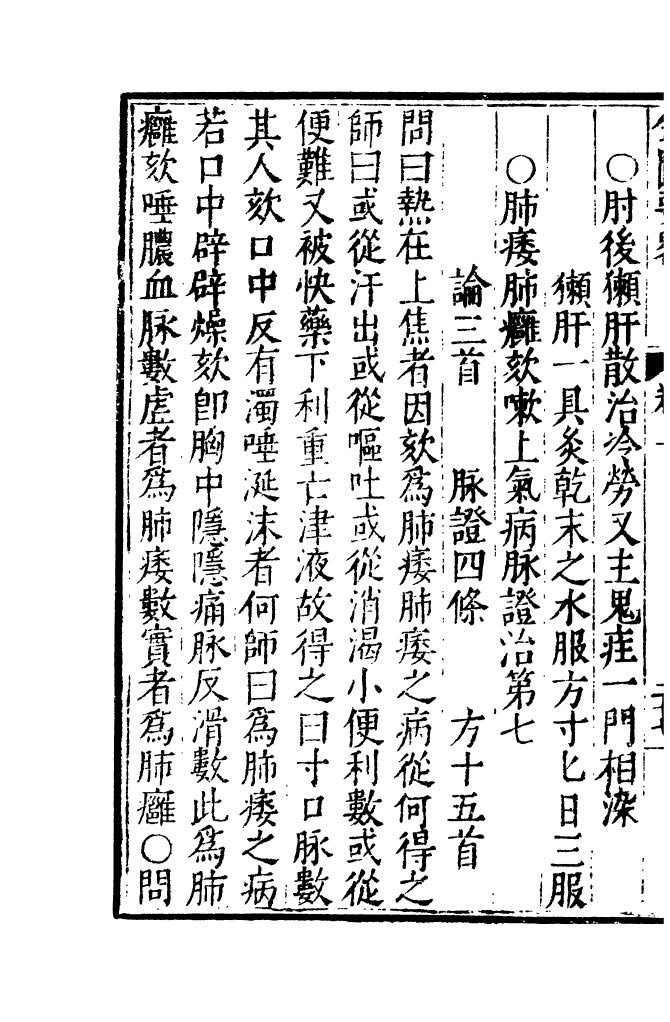 ○肘後獺肝散治冷勞又主鬼疰一門相染
獺肝一具炙乾末之水服方寸匕日三服
○肺痿肺癰欬嗽上氣病脉證治第七
論三首　脉證四條　方十五首
問曰熱在上焦者因欬爲肺痿肺痿之病從何得之
師曰或從汗出或從嘔吐或從消渴小便利數或從
便難又被快藥下利重亡津液故得之曰寸口脉數
其人欬口中反有濁唾涎沫者何師曰爲肺痿之病
若口中辟辟燥欬卽胸中隱隱痛脉反滑數此爲肺
癰欬唾膿血脉數虛者爲肺痿數實者爲肺癰○問